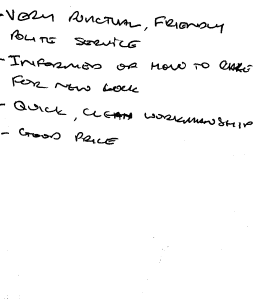 - VERY PUNCTUAL, FRIENDLY
POLITE SERVICE
- INFORMED OF HOW TO CARE
FOR NEW LOCK
- QUICK, CLEAN WORKMANSHIP
- GOOD PRICE